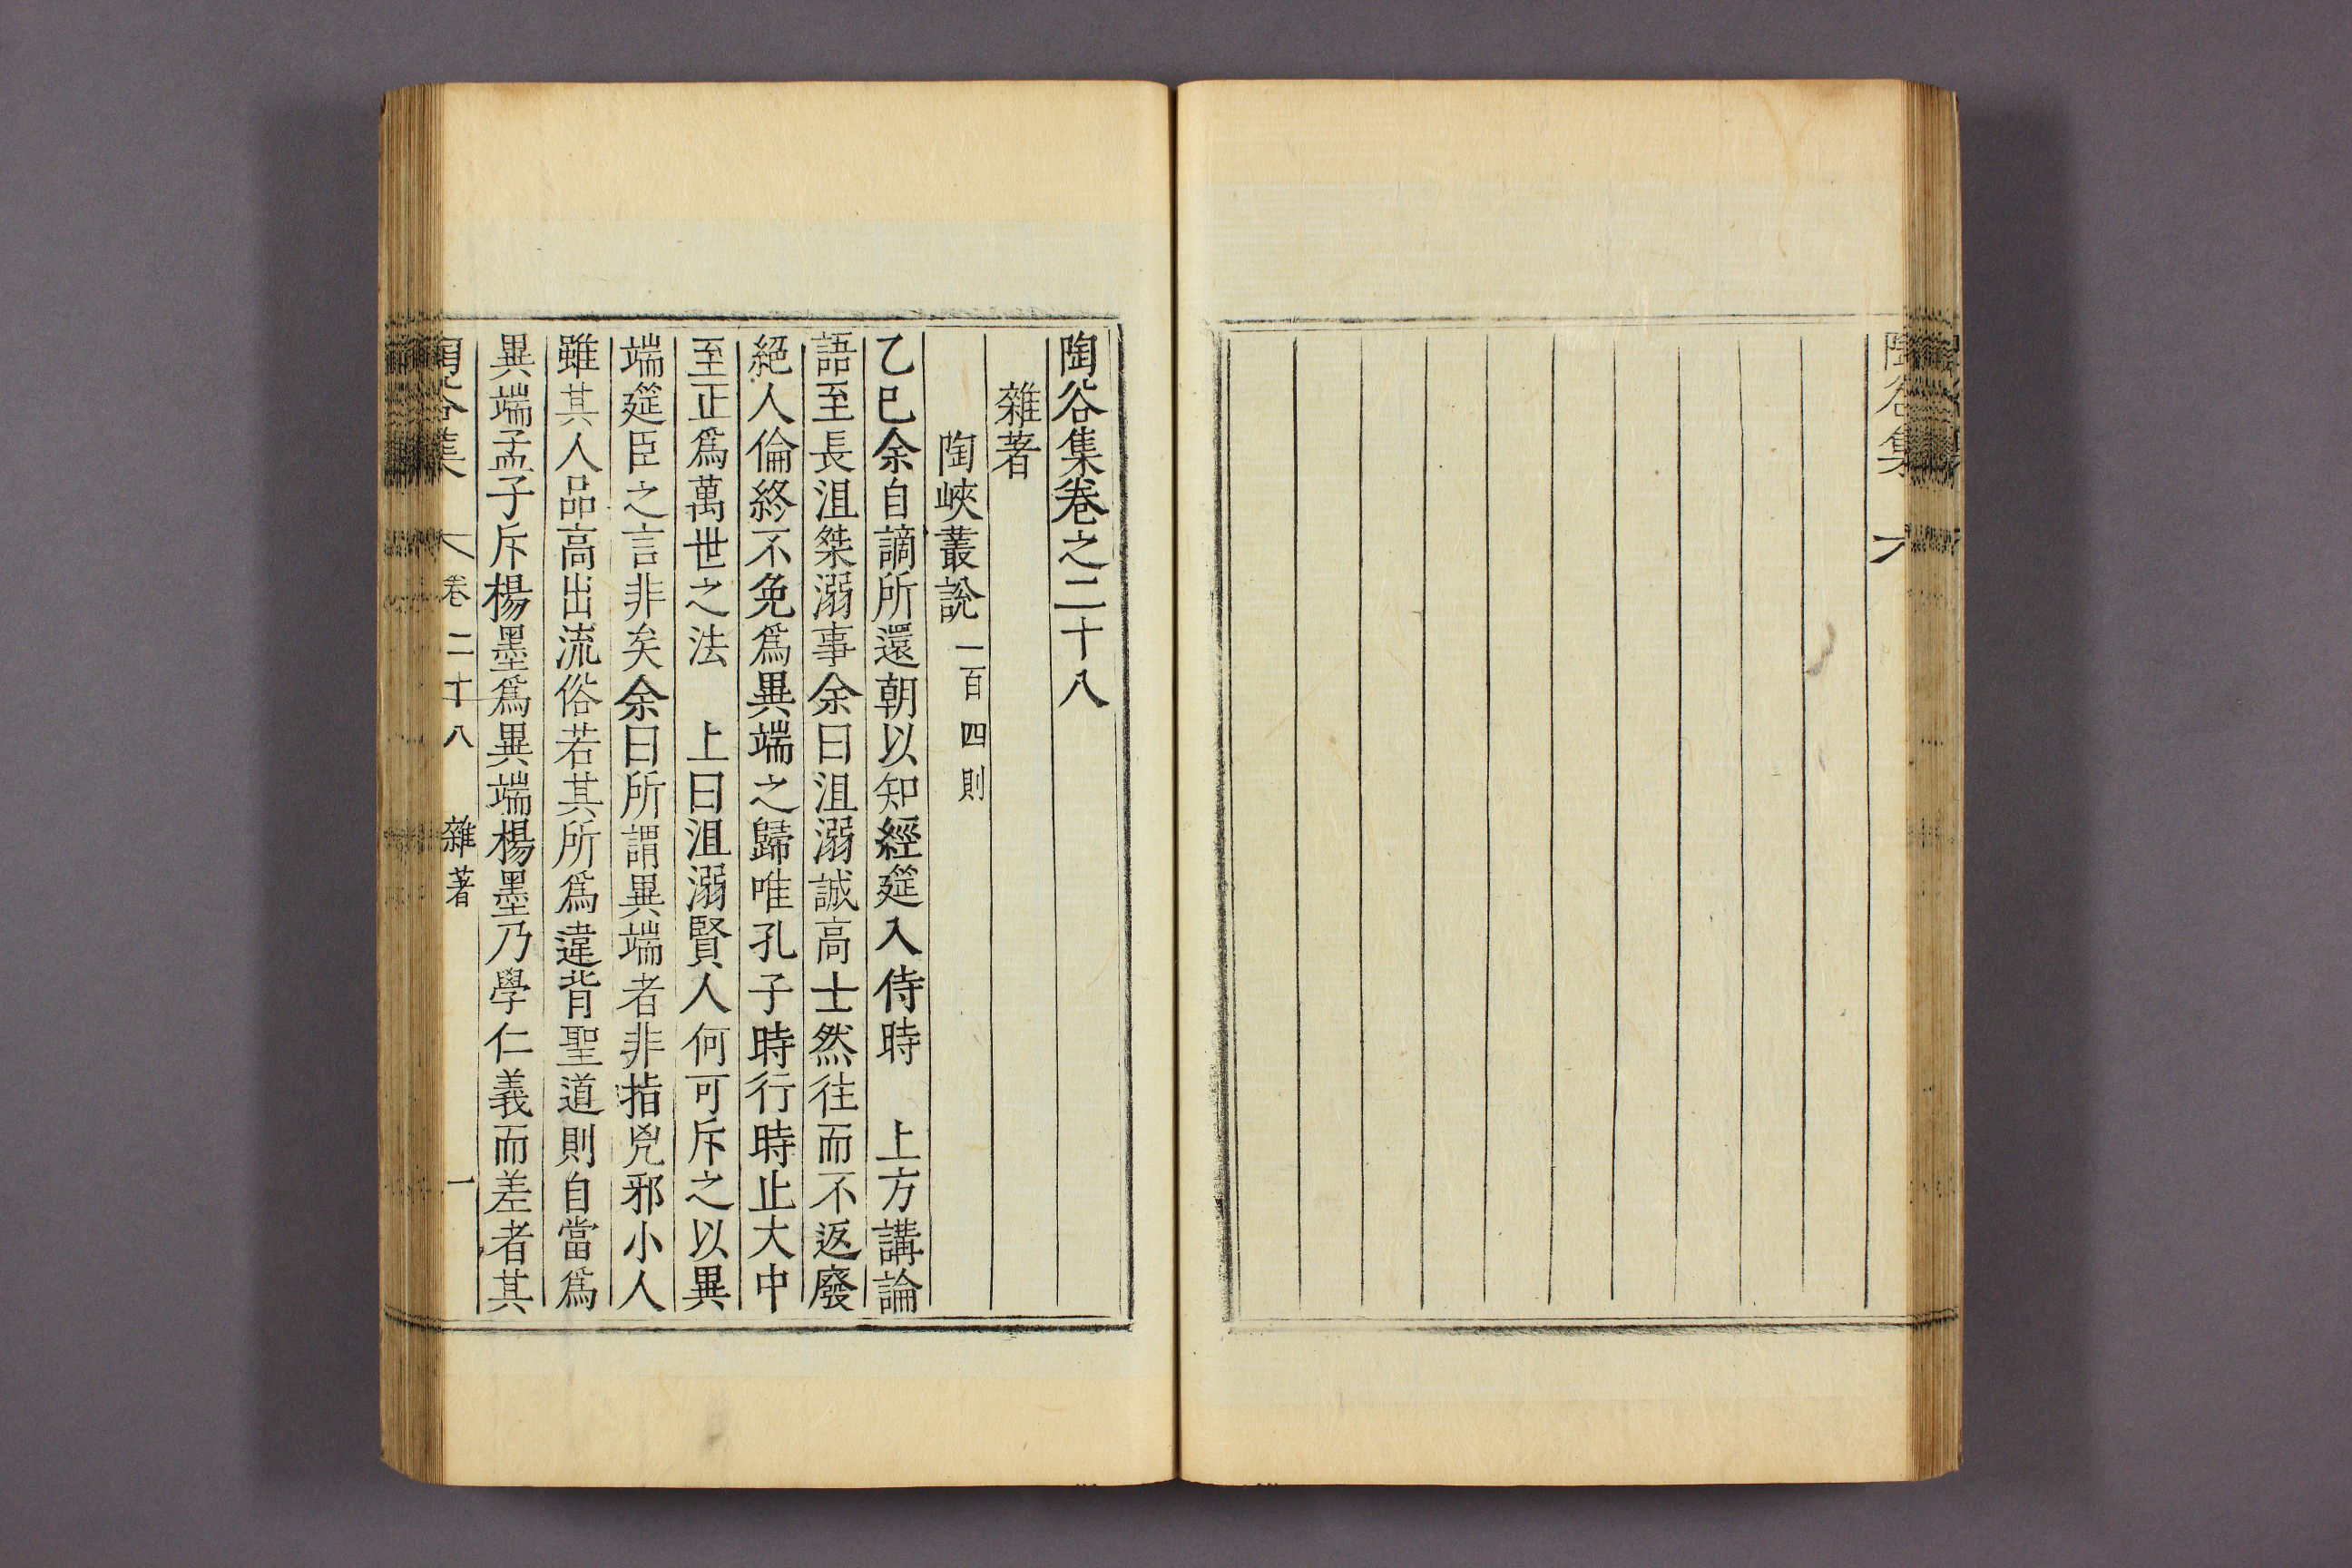 陶谷集
陶谷集卷之二十八
雜著
陶峽叢說一百四則
乙巳余自謫所還朝以知經筵入侍時　上方講論
語至長沮桀溺事余曰沮溺誠高士然往而不返廢
絕人倫終不免爲異端之歸唯孔子時行時止大中
至正爲萬世之法　上曰沮溺賢人何可斥之以異
端筵臣之言非矣余曰所謂異端者非指兇邪小人
雖其人品高出流俗若其所爲違背聖道則自當爲
異端孟子斥楊墨爲異端楊墨乃學仁義而差者其
陶谷集　卷二十八　雜著　一